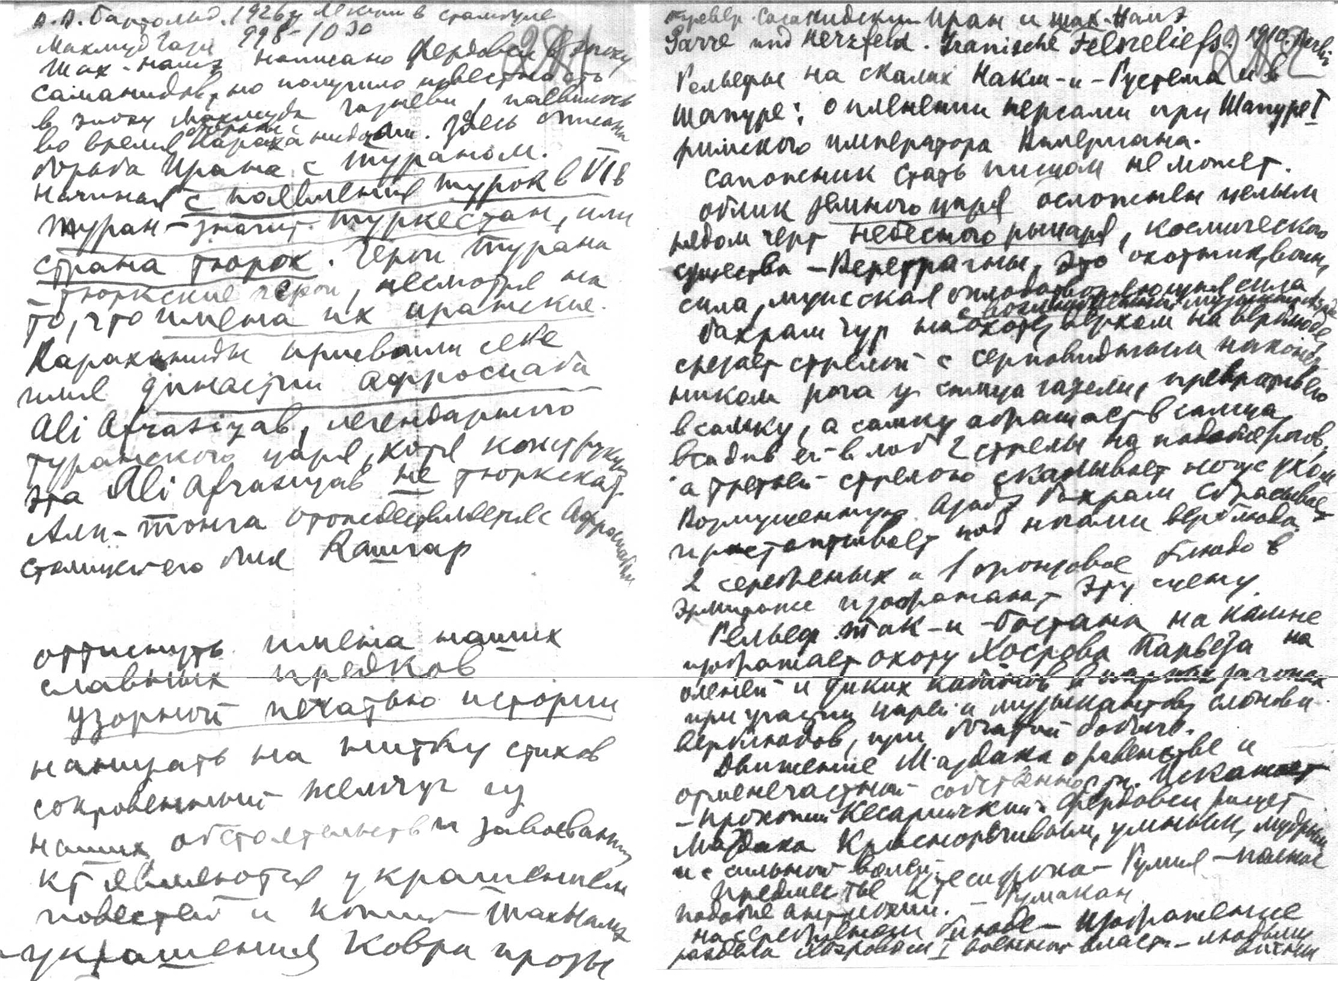 В.В. Бартольд. 1926 г. Лекции в Стамбуле
Махмуд Гази 998-1030
Шах-Намэ написано Фердовси в эпоху
саманидов, но получило известность
в эпоху Махмуда Газневи, появилось
во время Караханидов. Здесь описана
борьба Ирана с Тураном.
начиная с появления турок в VI в
Туран-значит Туркестан, или
страна тюрок. Герои Турана
-тюркские герои, несмотря на
то, что имена их иранские.
Караханиды присвоили себе
имя династии Афросиаба
Ali Afrasiyab, легендарного
туранского царя, хотя конструкция
эта Ali Afrasiyab не тюркская.
Алп-Тонга отождествляется с Афросиабом
столицей его был Кашгар
оттиснуть имена наших
славных предков
узорной печатью истории
нанизать на нитку стихов
сокровенный жемчуг из
наших обстоятельств и завоеваний
кт являются украшением
повестей и копией Шахнамэ
-украшения ковра прозы
Тревер. Сасанидский Иран и Шах-Намэ
Sarre und Herzfeld. Iranische Felsreliefs. 1910.
282
Рельефы на скалах Накш-и-Рустема и в
Шапуре: о пленении персами при Шапуре I
римского императора Валериана.
сапожник стать писцом не может.
облик земного царя осложнен целым
рядом черт небесного рыцаря, космического
существа - Веретрагны, это охотник, воин,
сила, мужская оплодотворяющая сила
Бахрам Гур на охоте, верхом на верблюде,
срезает стрелой с серповидным наконеч
ником рога у самца газели, превратив его
в самку, а самку обращает в самца,
всадив ей в лоб 2 стрелы
а третьей стрелою скалывает ногу с ухом
Возмущенную Азадэ Бахрам сбрасывает
и растаптывает под ногами верблюда
2 серебряных и 1 бронзовое блюдо в
Эрмитаже изображают эту сцену.
Рельеф Так-и-Бостана на камне
изображает охоту Хосрова Парвеза на
оленей и диких кабанов в загонах
при участии царей и музыкантов, слонов и
верблюдов, при богатой добыче.
Движение Маздака о равенстве и
отмене частной собственности. Искажает
-Прокопий Кесарийский. Фердовси рисует
Маздака красноречивым, умным, мудрым
и с сильной волей.
Предместье Ктесифона - Румия - полное
подобие Антиохии.
на серебряном блюде - изображение